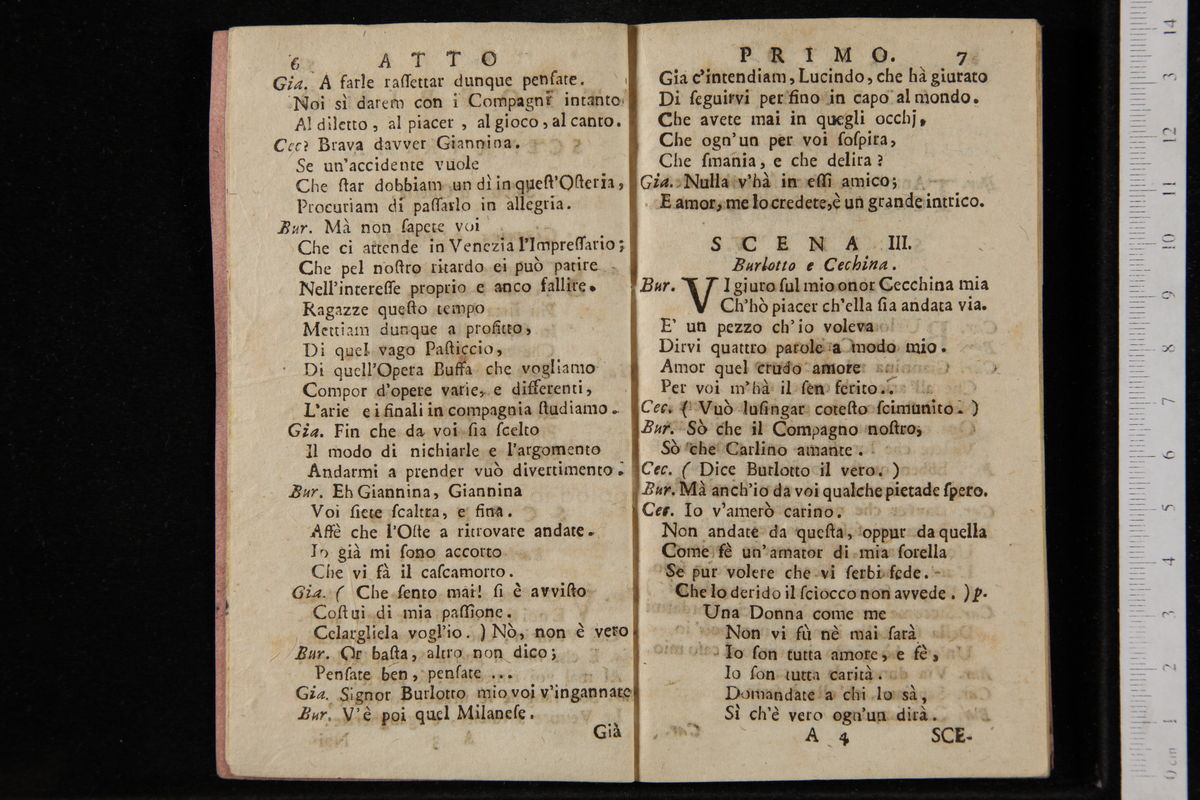 6 ATTO
Gia. A farle raſſettar dunque penſate.
Noi sì darem con i Compagni intanto
Al diletto, al piacer, al gioco, al canto.
Cec. Brava davver Giannina.
Se un'accidente vuole
Che ſtar dobbiam un dì in queſt'Oſteria,
Procuriam di paſſarlo in allegria.
Bur. Mà non ſapete voi
Che ci attende in Venezia l'Impreſſario;
Che pel noſtro ritardo ei può patire
Nell'intereſſe proprio e anco fallire.
Ragazze queſto tempo
Mettiam dunque a profitto,
Di quel vago Paſticcio,
Di quell'Opera Buffa che vogliamo
Compor d'opere varie, e differenti,
L'arie e i finali in compagnia ſtudiamo.
Gia. Fin che da voi ſia ſcelto
Il modo di nichiarle e l'argomento
Andarmi a prender vuò divertimento.
Bur. Eh Giannina, Giannina
Voi ſiete ſcaltra, e fina.
Affè che l'Oſte a ritrovare andate.
Io già mi ſono accorto
Che vi fà il caſcamorto.
Gia. ( Che ſento mai! ſi è avviſto
Coſtui di mia paſſione.
Celargliela vogl'io. ) Nò, non è vero
Bur. Or baſta, altro non dico;
Penſate ben, penſate ...
Gia. Signor Burlotto mio voi v'ingannate
Bur. V'è poi quel Milaneſe.
Già
PRIMO. 7
Gia c'intendiam, Lucindo, che hà giurato
Di ſeguirvi per fino in capo al mondo.
Che avete mai in quegli occhj,
Che ogn'un per voi ſoſpira,
Che ſmania, e che delira?
Gia. Nulla v'hà in eſſi amico;
E amor, me lo credete, è un grande intrico.
SCENA III.
Burlotto e Cechina.
Bur. VI giuro ſul mio onor Cecchina mia
Ch'hò piacer ch'ella ſia andata via.
E' un pezzo ch'io voleva
Dirvi quattro parole a modo mio.
Amor quel crudo amore
Per voi m'hà il ſen ferito..
Cec. ( Vuò luſingar coteſto ſcimunito. )
Bur. Sò che il Compagno noſtro,
Sò che Carlino amante.
Cec. ( Dice Burlotto il vero. )
Bur. Mà anch'io da voi qualche pietade ſpero.
Cec. Io v'amerò carino.
Non andate da queſta, oppur da quella
Come fè un'amator di mia ſorella
Se pur volete che vi ſerbi fede.
Che lo derido il ſciocco non avvede. ) p.
Una Donna come me
Non vi fù nè mai ſarà
Io ſon tutta amore, e fè,
Io ſon tutta carità.
Domandate a chi lo sà,
Sì ch'è vero ogn'un dirà.
A 4 SCE-